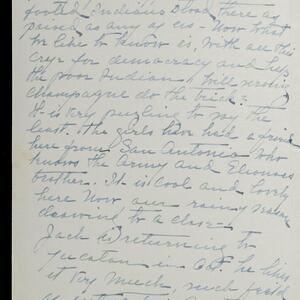 footed Indians blood there as
priced as any of us - Now what
we like to know is, with all this
cry for democracy and help
the poor Indian, will serving
champagne do the trick?
It is very puzzling to say the
least. The girls have had a friend
here from San Antonio who
knows the Army and Eleanor's
brother. It is cool and lovely
here Now our rainy season
drawing to a close -
Jack is returning to
Yucatan in Oct. he likes
it very much, such